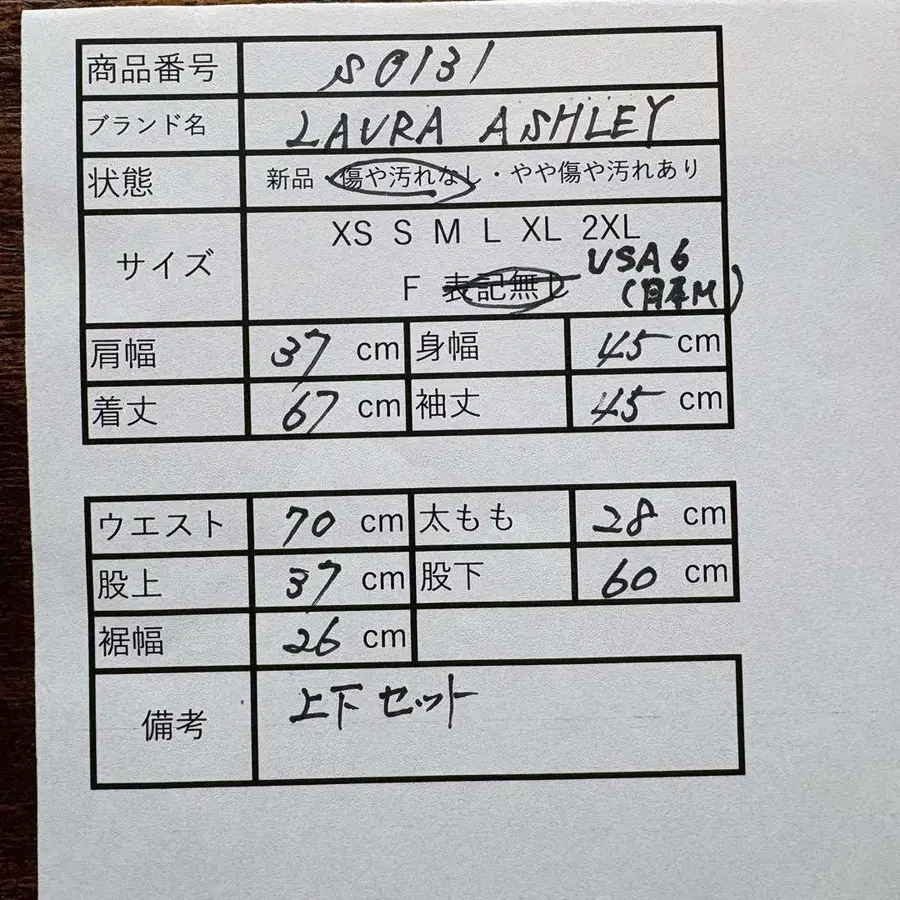 商品番号 S0131
ブランド名 LAURA ASHLEY
状態 新品・傷や汚れなし・やや傷や汚れあり
サイズ XS S M L XL 2XL
F 表記無し USA6
(日本M)
肩幅 37 cm 身幅 45 cm
着丈 67 cm 袖丈 45 cm
ウエスト 70 cm 太もも 28 cm
股上 37 cm 股下 60 cm
裾幅 26 cm
備考 上下セット